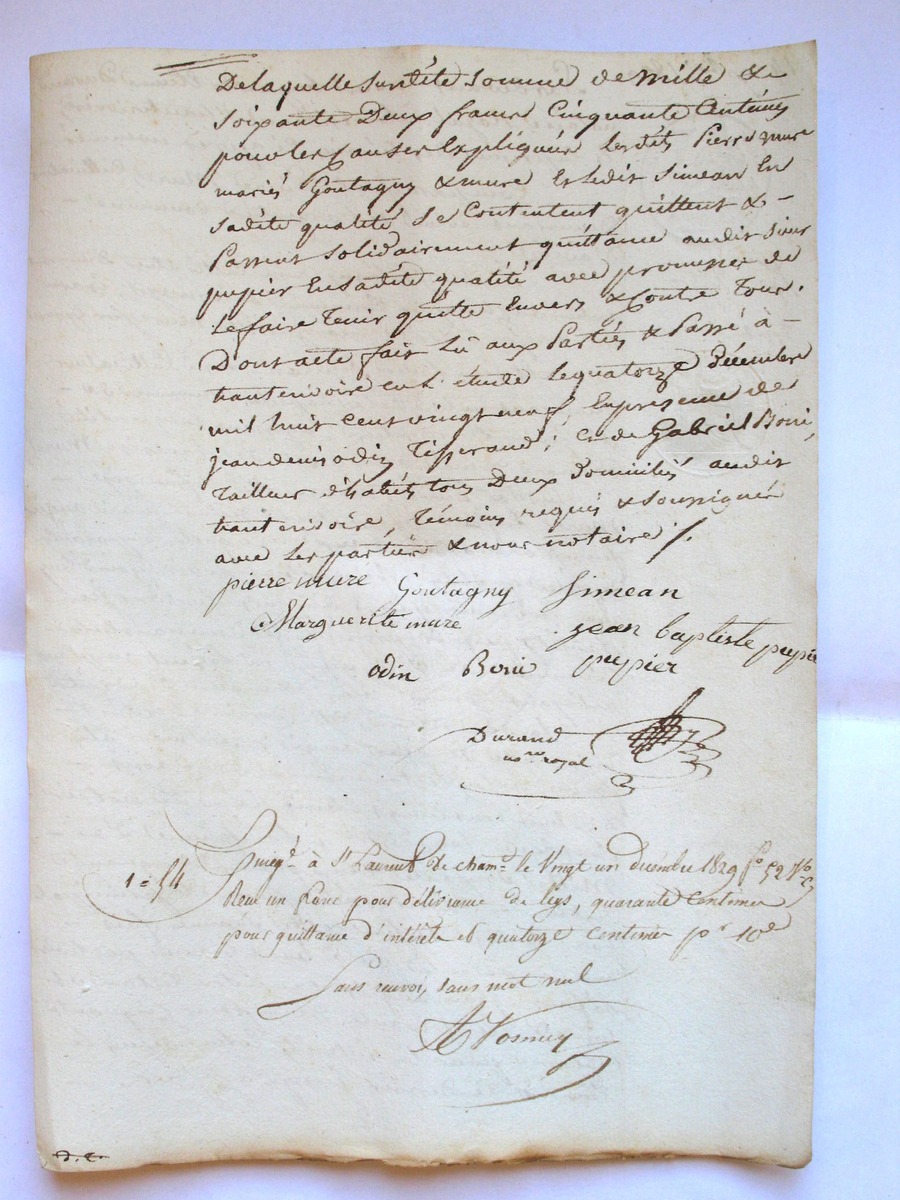 De laquelle susdite somme de mille &
soixante Deux francs Cinquante Centimes
pour les Causes Expliquées lesdits Pierre mure
mariés Goutagny & mure Et ledit Simean En
sadite qualité se Contentent quittent & -
Passent solidairement quittance audit sieur
pupier En sadite qualité avec promesse de
le faire Tenir quitte Envers & Contre Tous.
Dont acte fait lû aux Parties & Passé à -
hauterivoire en l'étude le quatorze Décembre
mil huit cent vingt neuf, En présence de
jean denis odin Tisserand; Et de Gabriel Boni,
Tailleur d'habits tous Deux Domiciliés audit
hauterivoire, Témoins requis & soussignés
avec les parties & nous notaire /.
pierre mure Goutagny Simean
Marguerite mure jean baptiste pupier
odin Boni pupier
Durand
nre royal
1=54
Enregé à St Laurent de chamt le Vingt un décembre 1829 fo 52 Vo
Reçu un franc pour délivrance de legs, quarante Centimes
pour quittance d'intérêts et quatorze centimes pr 10e
Sans renvoi, sans mot nul